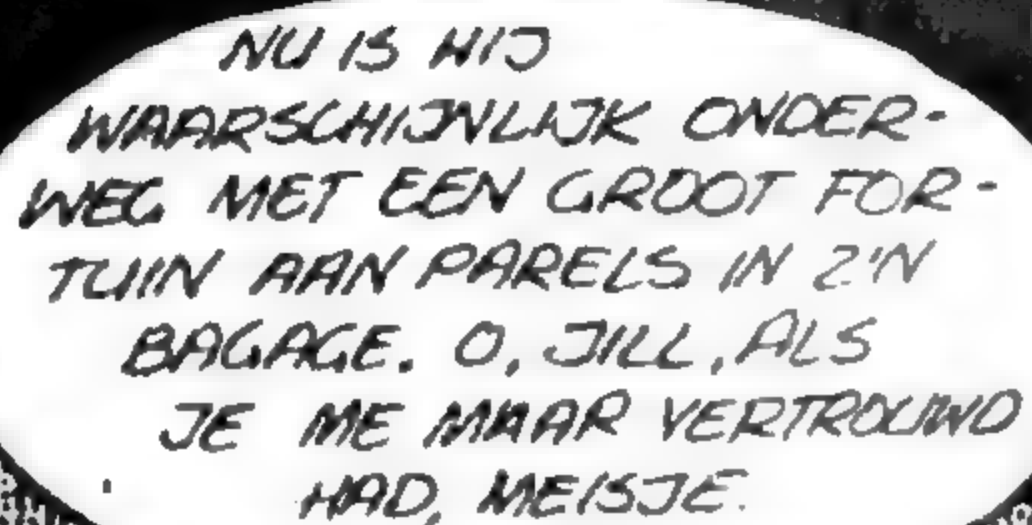 NU IS HIJ
WAARSCHIJNLIJK ONDER-
WEG MET EEN GROOT FOR-
TUIN AAN PARELS IN Z'N
BAGAGE. O, JILL, ALS
JE ME MAAR VERTROUWD
HAD, MEISJE.